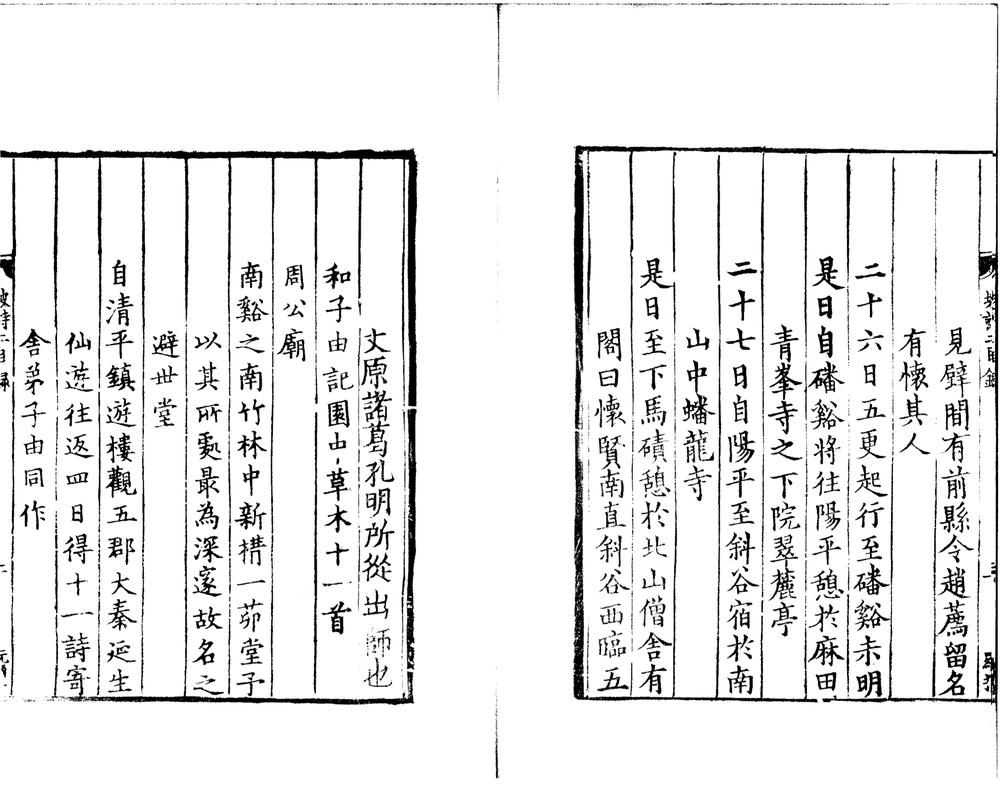 見壁間有前縣令趙薦留名
有懷其人
二十六日五更起行至磻谿未明
是日自磻谿將往陽平憩於麻田
青峯寺之下院翠麓亭
二十七日自陽平至斜谷宿於南
山中蟠龍寺
是日至下馬磧憩於北山僧舍有
閣曰懷賢南直斜谷西臨五
丈原諸葛孔明所從出師也
和子由記園中草木十一首
周公廟
南谿之南竹林中新構一茆堂予
以其所䖏最為深邃故名之
避丗堂
自清平鎮遊樓觀五郡大秦延生
仙遊往返四日得十一詩寄
舍弟子由同作